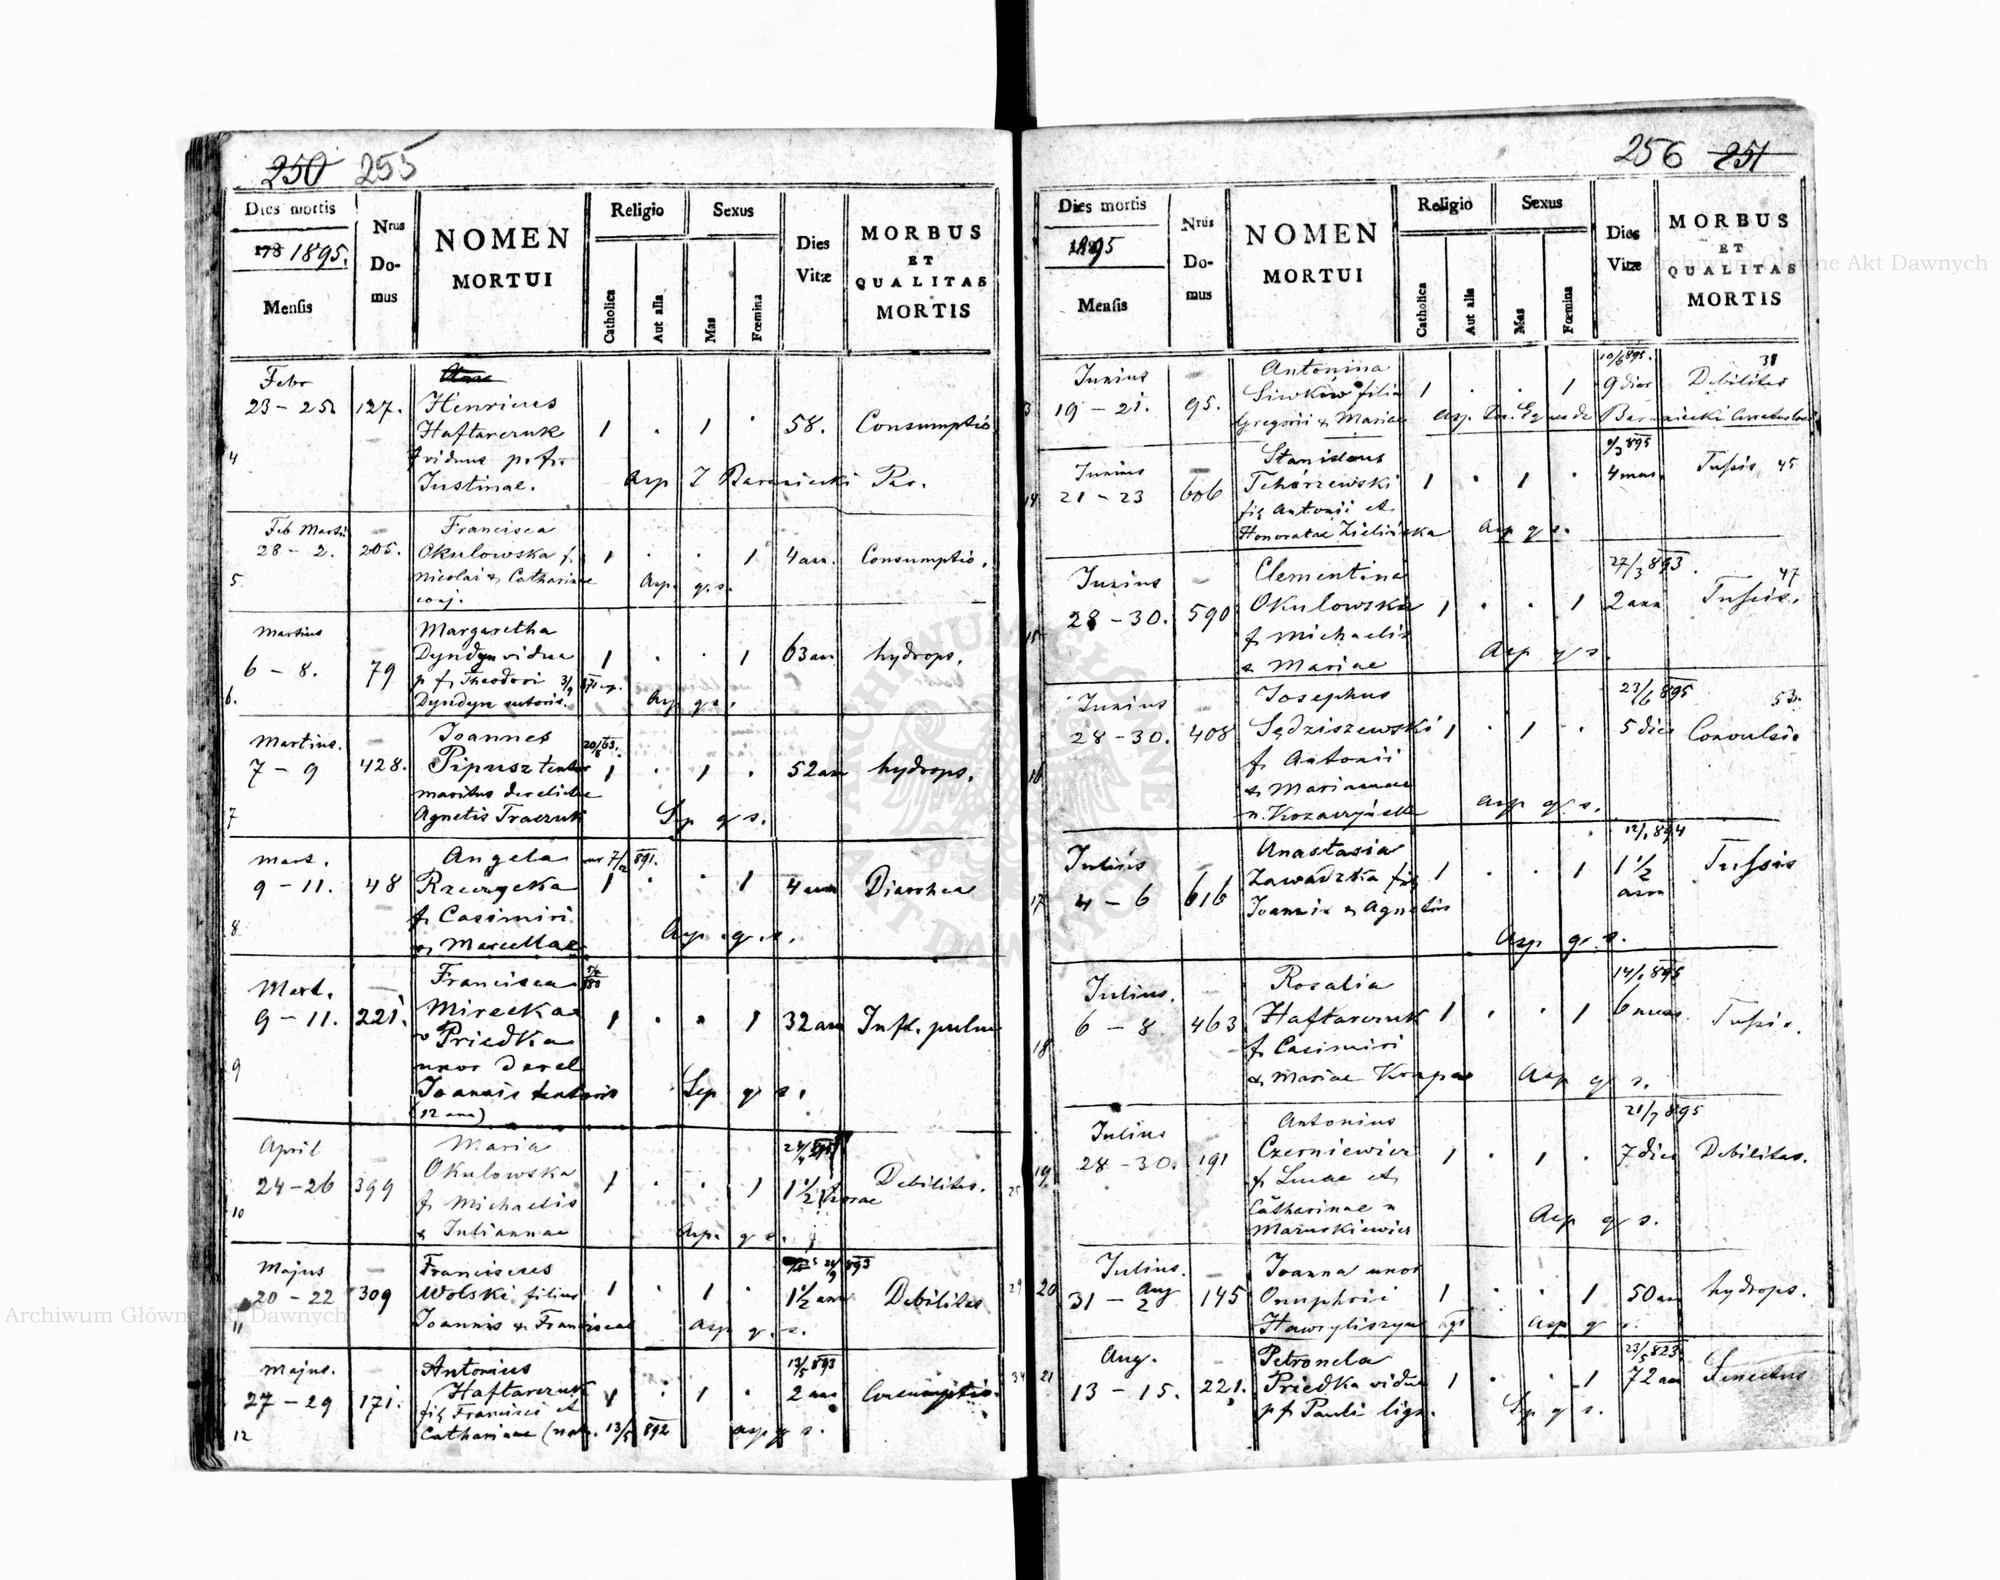 250 255
Dies mortis
178 1895.
Mensis
Nrus
Do-
mus
NOMEN
MORTUI
Religio
Catholica
Aut alia
Sexus
Mas
Fœmina
Dies
Vitæ
MORBUS
ET
QUALITAS
MORTIS
4
Febr
23 – 25
127.
Henricus
Haftarczuk
viduus p. f.
Justinae.
1 . 1 .
58.
Consumptio
Asp J Baraniecki Par.
5.
Feb Marti
28 – 2.
205.
Francisca
Okulowska f.
Nicolai & Catharinae
conj.
1 . . 1
4 ann.
Consumptio.
Asp. q. s.
6.
Martius
6 – 8.
79
Margaretha
Dyndyn vidua
p f. Theodori
Dyndyn sutoris.
1 . . 1
63 an
hydrops.
Asp q s.
7
Martius.
7 – 9
428.
Joannes
Pipusz
maritus derelictae
Agnetis Traczuk
1 . 1 .
52 an
hydrops.
Sp q s.
8
Mart.
9 – 11.
48
Angela
Rzeczycka
f. Casimiri
& Marcellae
7/12 891.
1 . . 1
4 ann
Diarrhea
Asp. q. s.
9
Mart.
9 – 11.
221.
Francisca
Mirecka
v Priedka
uxor derel
Joannis
(12 ann)
1 . . 1
32 an
Infl. pulm
Sep q s.
10
April
24 – 26
399
Maria
Okulowska
f. Michaelis
& Juliannae
1 . . 1
1 1/2 horae
Debilitas.
Asp. q s.
11
Majus
20 – 22
309
Franciscus
Wolski filius
Joannis & Franciscae
1 . 1 .
1 1/2 ann
Debilitas
Asp q. s.
12
Majus.
27 – 29
171.
Antonius
Haftarczuk
fil Francisci et
Catharinae (nat. 13/5 892
13/5 893
1 . 1 .
2 ann
Consumptio.
asp q s.
256 251
Dies mortis
1895
Mensis
Nrus
Do-
mus
NOMEN
MORTUI
Religio
Catholica
Aut alia
Sexus
Mas
Fœmina
Dies
Vitæ
MORBUS
ET
QUALITAS
MORTIS
Junius
19 – 21.
95.
Antonina
Siwków filia
Gregorii & Mariae
1 . . 1
10/6 895.
9 dies
38
Debilitas
14
Junius
21 – 23
606
Stanislaus
Tchórzewski
fil Antonii et
Honoratae Zielińska
1 . 1 .
9/3 895
4 mens.
Tussis 45
Asp q s.
15
Junius
28 – 30.
590
Clementina
Okulowska
f. Michaelis
& Mariae
1 . . 1
27/3 893.
2 ann
47
Tussis.
Asp q s.
16
Junius
28 – 30.
408
Josephus
Sędziszewski
f. Antonii
& Mariannae
1 . 1 .
23/6 895
5 dies
53.
Convulsio
asp q s.
17
Julius
4 – 6
616
Anastasia
Zawadzka fil
Joannis & Agnetis
1 . . 1
12/1 894
1 1/2
ann
Tussis
Asp q. s.
18
Julius.
6 – 8
463
Rosalia
Haftarczuk
f. Casimiri
& Mariae
1 . . 1
14/1 895
6 mens.
Tussis.
Asp q s.
19
Julius
28 – 30.
191
Antonius
Czerniewicz
f. Lucae et
Catharinae n
1 . 1 .
21/7 895
7 dies
Debilitas.
Asp q s.
20
Julius.
31 – Aug 2
145
Joanna uxor
Onuphrii
Hawryliszyn
1 . . 1
50 an
hydrops.
Asp q s.
21
Aug.
13 – 15.
221.
Petronela
Priedka vidua
p f. Pauli lign.
1 . . 1
23/5 823.
72 an
Senectus
Sp q s.
Archiwum Główne Akt Dawnych
Archiwum Główne Akt Dawnych
ARCHIWUM GŁÓWNE AKT DAWNYCH